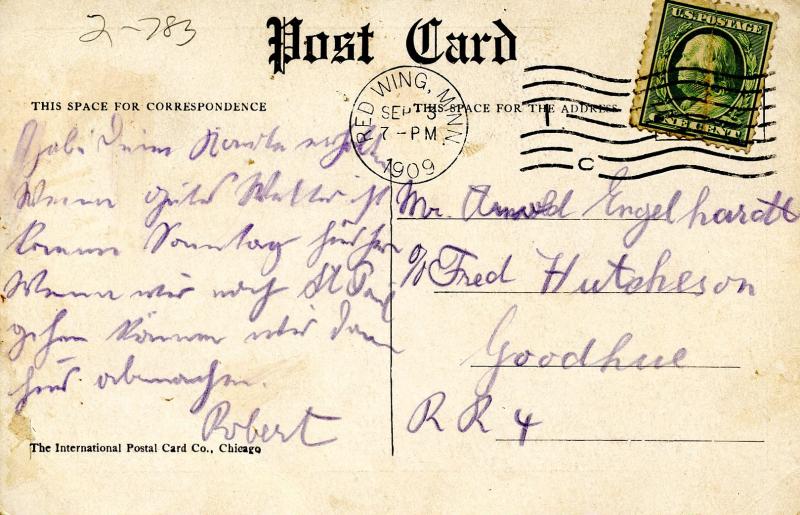 2-783
Post Card
U.S. POSTAGE
ONE CENT
RED WING, MINN.
SEP 3
7-PM
1909
C
THIS SPACE FOR CORRESPONDENCE
THIS SPACE FOR THE ADDRESS
Habe Deine Karte erhalten
Wenn gutes Wetter ist
komme Sonntag hierher
Wenn wir nach St Paul
gehen können wir dann
hier abmachen.
Robert
Mr. Arnold Engelhardt
c/o Fred Hutcheson
Goodhue
R R 4
The International Postal Card Co., Chicago